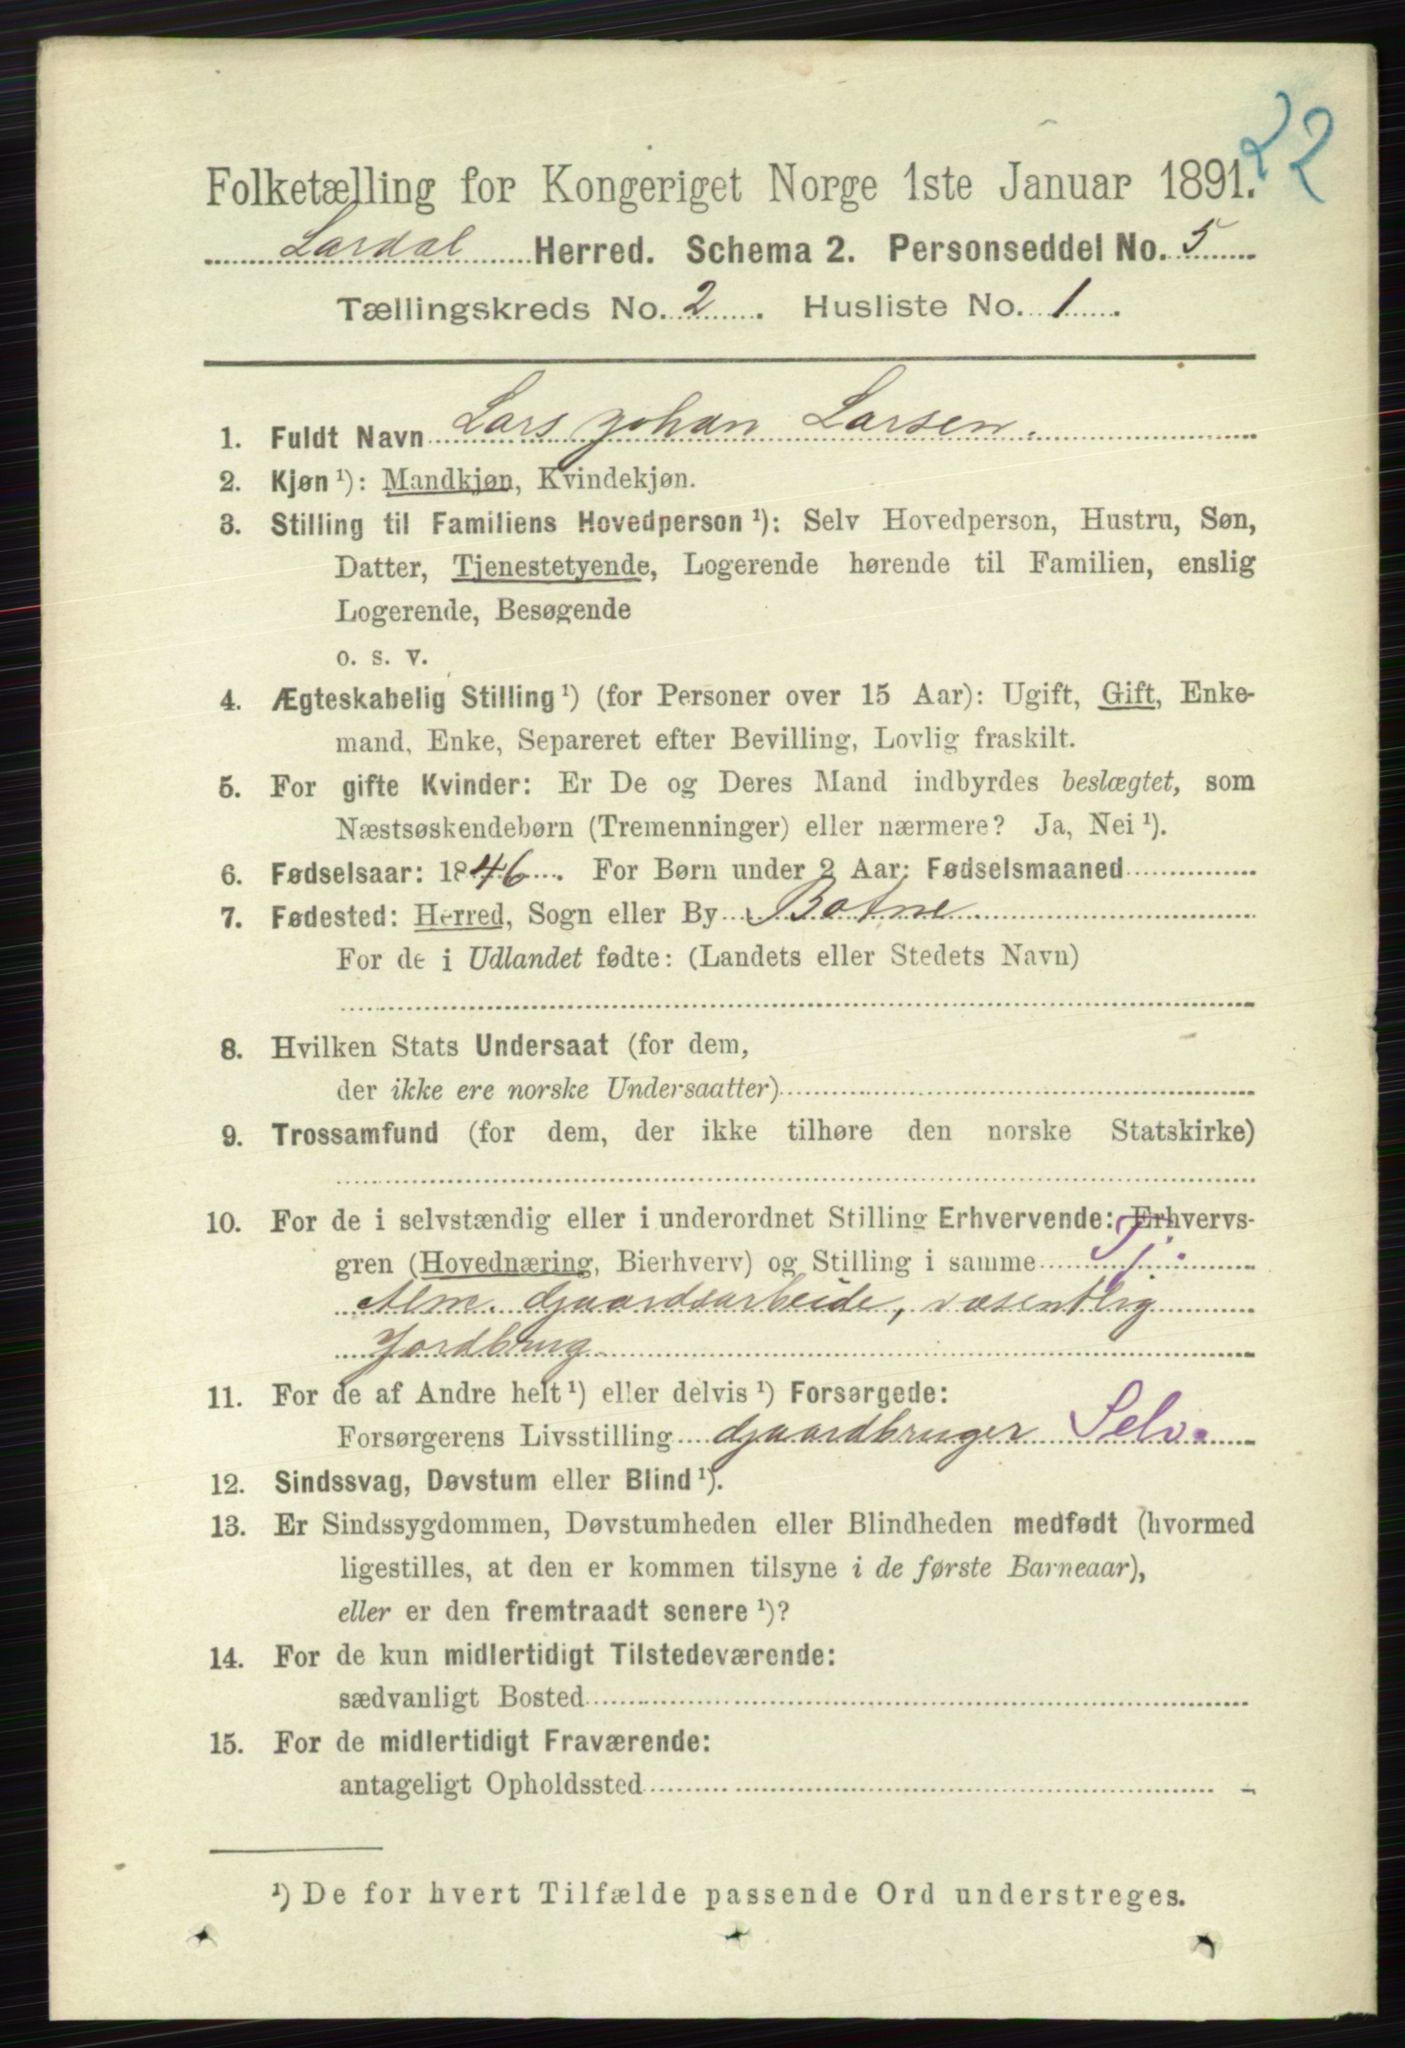 22
Folketælling for Kongeriget Norge 1ste Januar 1891.
Lardal Herred. Schema 2. Personseddel No. 5
Tællingskreds No. 2. Husliste No. 1.
1. Fuldt Navn Lars Johan Larsen.
2. Kjøn ¹): Mandkjøn, Kvindekjøn.
3. Stilling til Familiens Hovedperson ¹): Selv Hovedperson, Hustru, Søn,
Datter, Tjenestetyende, Logerende hørende til Familien, enslig
Logerende, Besøgende
o. s. v.
4. Ægteskabelig Stilling ¹) (for Personer over 15 Aar): Ugift, Gift, Enke-
mand, Enke, Separeret efter Bevilling, Lovlig fraskilt.
5. For gifte Kvinder: Er De og Deres Mand indbyrdes beslægtet, som
Næstsøskendebørn (Tremenninger) eller nærmere? Ja, Nei ¹).
6. Fødselsaar: 1846. For Børn under 2 Aar: Fødselsmaaned
7. Fødested: Herred, Sogn eller By Botne
For de i Udlandet fødte: (Landets eller Stedets Navn)
8. Hvilken Stats Undersaat (for dem,
der ikke ere norske Undersaatter)
9. Trossamfund (for dem, der ikke tilhøre den norske Statskirke)
10. For de i selvstændig eller i underordnet Stilling Erhvervende: Erhvervs-
gren (Hovednæring, Bierhverv) og Stilling i samme Tj.
Alm. Gaardsarbeide, væsentlig
Jordbrug
11. For de af Andre helt ¹) eller delvis ¹) Forsørgede:
Forsørgerens Livsstilling Gaardbruger Selv.
12. Sindssvag, Døvstum eller Blind ¹).
13. Er Sindssygdommen, Døvstumheden eller Blindheden medfødt (hvormed
ligestilles, at den er kommen tilsyne i de første Barneaar),
eller er den fremtraadt senere ¹)?
14. For de kun midlertidigt Tilstedeværende:
sædvanligt Bosted
15. For de midlertidigt Fraværende:
antageligt Opholdssted
¹) De for hvert Tilfælde passende Ord understreges.